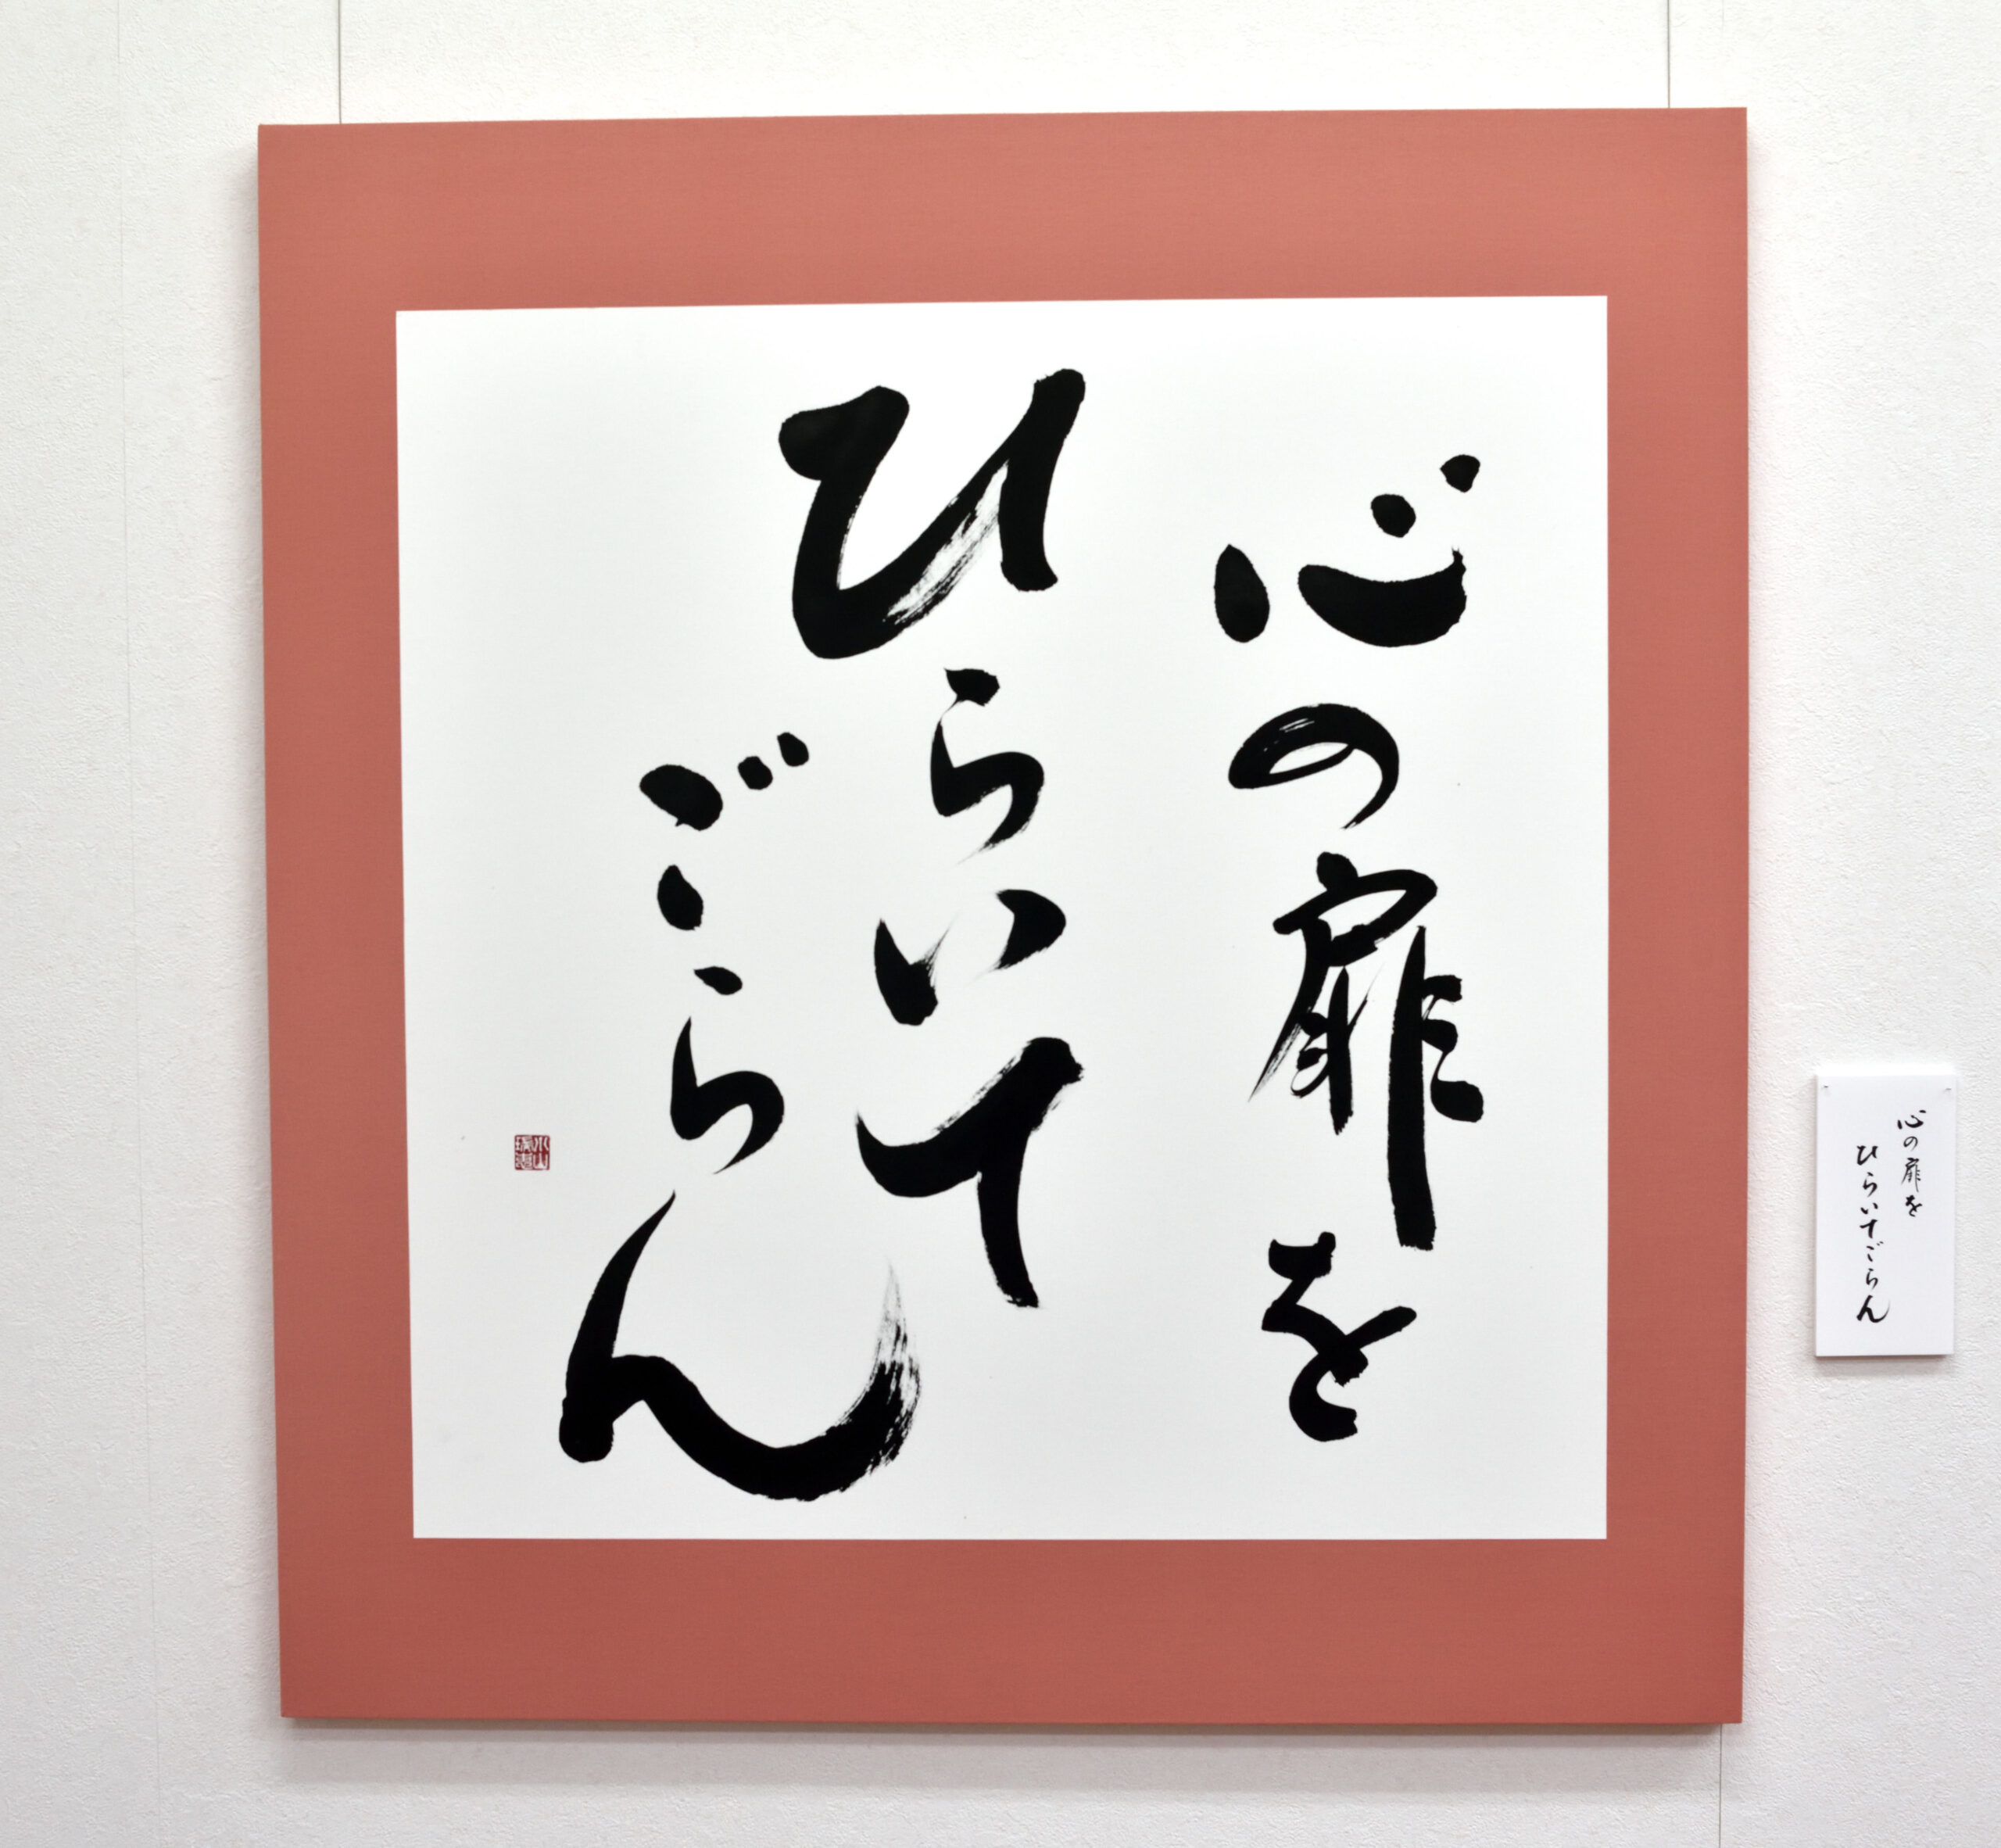 心の扉を
ひらいて
ごらん
心の扉を
ひらいてごらん